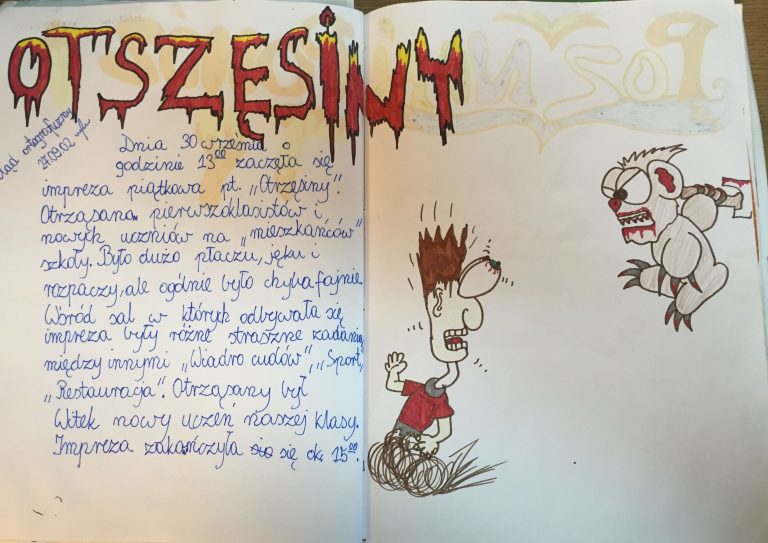 OTSZĘSINY
błąd ortograficzny
27.09.02
Dnia 30 września o
godzinie 13⁰⁰ zaczęła się
impreza piątkowa pt. „Otrzęsiny”.
Otrząsano pierwszoklasistów i
nowych uczniów na „mieszkańców”
szkoły. Było dużo płaczu, jęku i
rozpaczy, ale ogólnie było chyba fajnie.
Wśród sal w których odbywała się
impreza były różne straszne zadania,
między innymi „Wiadro cudów”, „Sport”,
„Restauracja”. Otrząsany był
Witek nowy uczeń naszej klasy.
Impreza zakończyła się ok. 15⁰⁰.